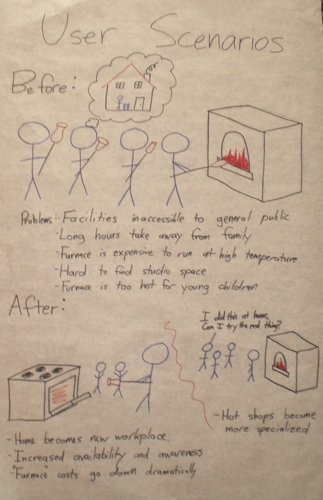 User Scenarios
Before:
Problems: -Facilities inaccessible to general public
-Long hours take away from family
-Furnace is expensive to run at high temperature
-Hard to find studio space
-Furnace is too hot for young children
After:
I did this at home,
Can I try the real thing?
-Hot shops become
more specialized
-Home becomes new workplace.
-Increased availability and awareness
-"Furnace" costs go down dramatically